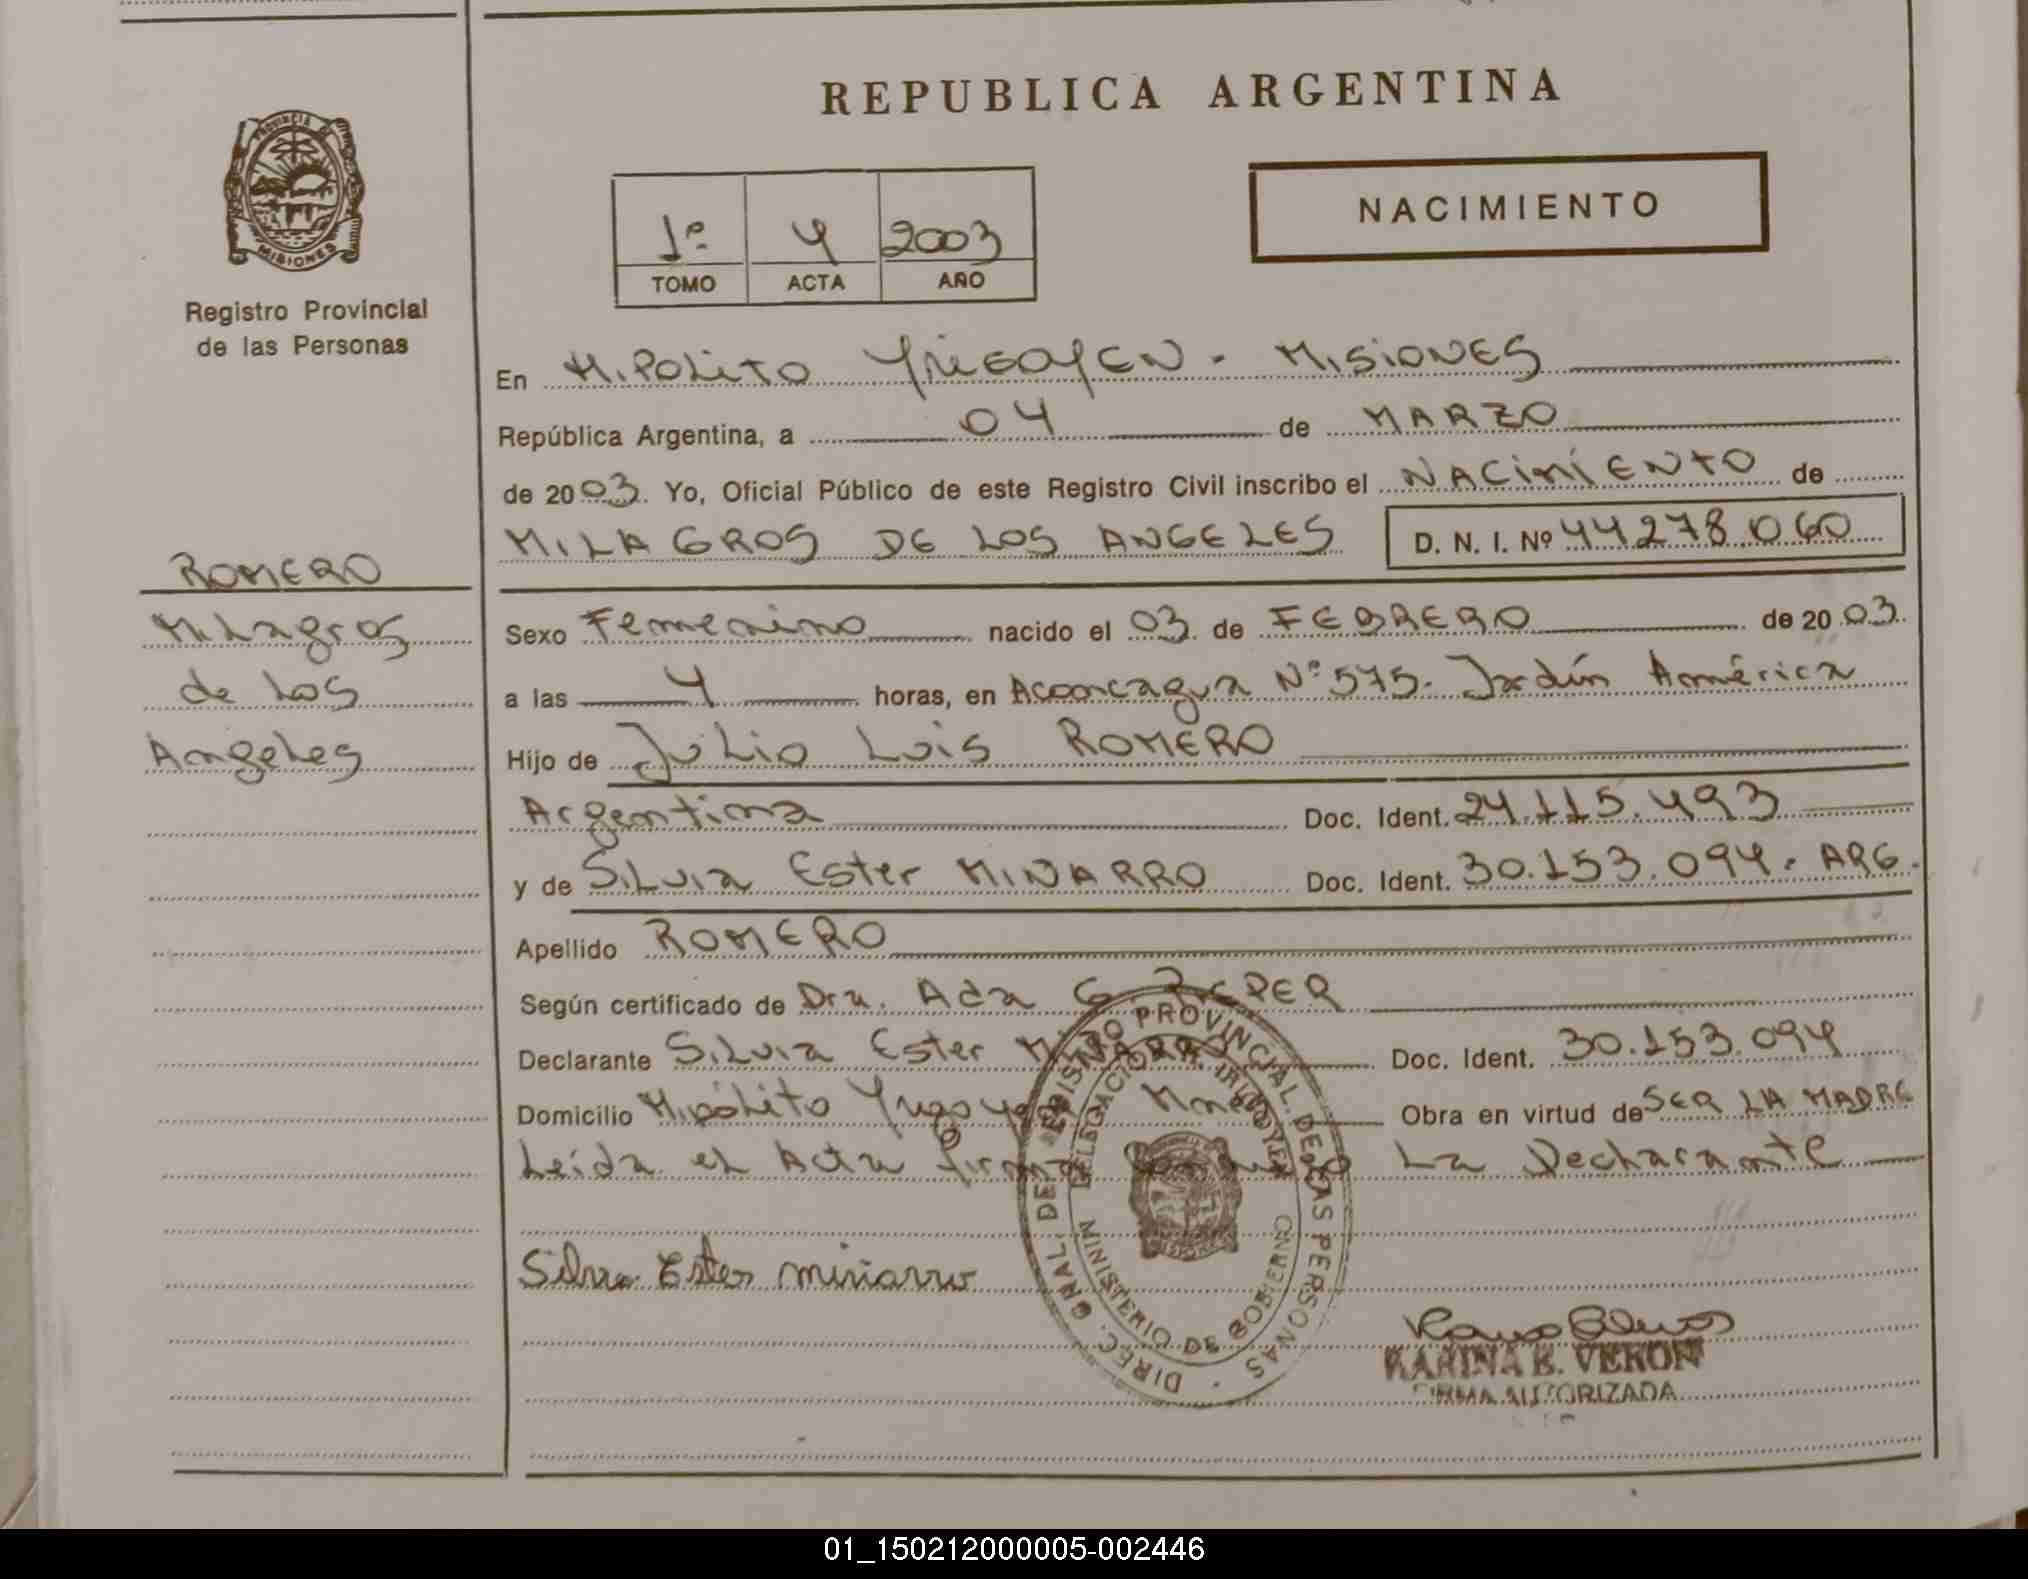 REPUBLICA ARGENTINA
PROVINCIA DE
MISIONES
Registro Provincial
de las Personas
1º 4 2003
TOMO ACTA AÑO
NACIMIENTO
En HIPOLITO YRIGOYEN - MISIONES
República Argentina, a 04 de MARZO
de 2003. Yo, Oficial Público de este Registro Civil inscribo el NACIMIENTO de
MILAGROS DE LOS ANGELES D. N. I. Nº 44278.060
ROMERO
Milagros
de Los
Angeles
Sexo Femenino nacido el 03 de FEBRERO de 2003.
a las 4 horas, en Aconcagua Nº 575. Jardín América
Hijo de Julio Luis ROMERO
Argentina Doc. Ident. 24.115.493
y de Silvia Ester MIÑARRO Doc. Ident. 30.153.094. ARG.
Apellido ROMERO
Según certificado de Dra. Ada G.
Declarante Silvia Ester MIÑARRO Doc. Ident. 30.153.094
Domicilio Hipólito Yrigoyen Obra en virtud de SER LA MADRE
Leída el Acta firma La Declarante
Silvia Ester miñarro
DIREC. GRAL. DEL REGISTRO PROVINCIAL DE LAS PERSONAS
DELEGACION H. IRIGOYEN
MINISTERIO DE GOBIERNO
KARINA E. VERON
FIRMA AUTORIZADA
01_150212000005-002446